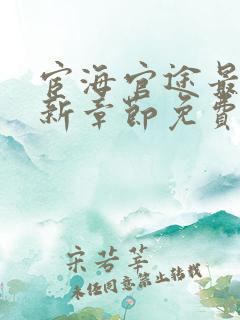 宦海官途最
新章節免費
宋若莘
未经同意禁止转载